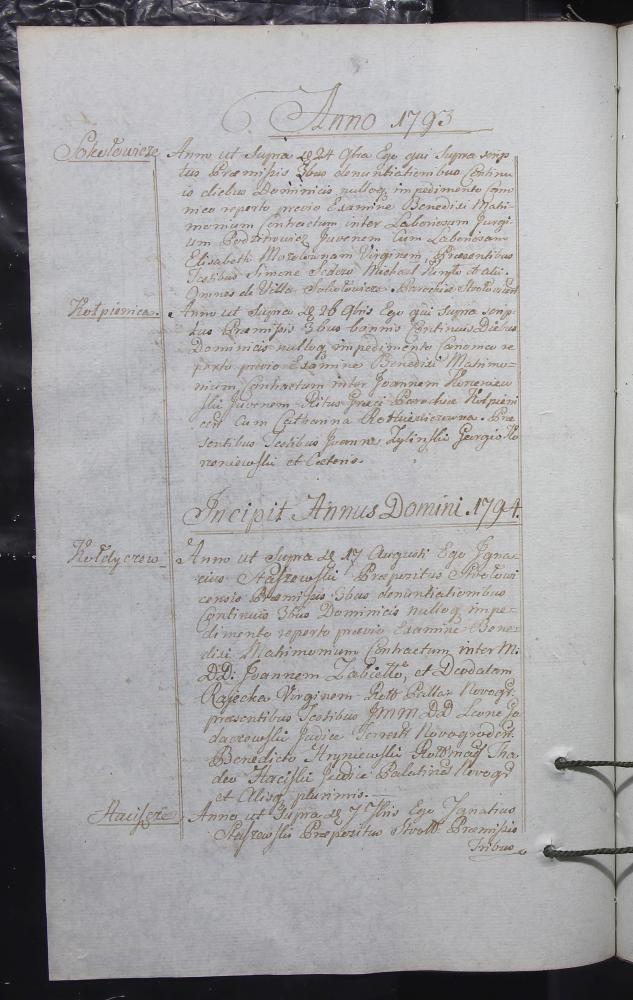 Anno 1793
Sokołowicze Anno ut Supra de 24 9bra Ego qui Supra scrip
tus Præmissis 3bus denuntiationibus Continu
is diebus Dominicis nulloq impedimento Cano
nico reperto previo Examine Benedixi Matri
monium Contractum inter Laboriosum Jurgi
um Juvenem Cum Laboriosam
Elisabeth Virginem Præsentibus
Testibus Simone Michael et alii
Omnes de Villa Sokołowicze Parochiæ
Kołpienica Anno ut Supra de 26 9bris Ego qui supra scrip
tus Premissis 3bus bannis Continuis Diebus
Dominicis nulloq impedimento Canonico re
perto previo Examine Benedixi Matrimo-
nium Contractum inter Joannem Korzeniew
ski Juvenem Ritus Græci Parochiæ Kołpieni
cen Cum Catharina . Præ
sentibus Testibus Joanne Zyliński Georgio Ko
rzeniewski et Cæteris.
Incipit Annus Domini 1794
Kołdyczew Anno ut Supra de 17 Augusti Ego Igna-
cius Præpositus Stwołowi
censis Præmissis 3bus denuntiationibus
Continuis 3bus Dominicis nulloq impe-
dimento reperto prævio Examine Bene-
dixi Matrimonium Contractum inter M:
DD: Joannem Zabiełło, et Deodatam
Rajecka Virginem Novogr:
præsentibus Testibus JMM DD Leone Jo
daczewski Judice Terrest Novogroden:
Benedicto Hryniewski Rottmag Tha
deo Judice Palatines Novogr
et Alisq plurimis.
Anno ut Supra de 7 7bris Ego Ignatius
Præpositus Stwoł Præmissis
Tribus